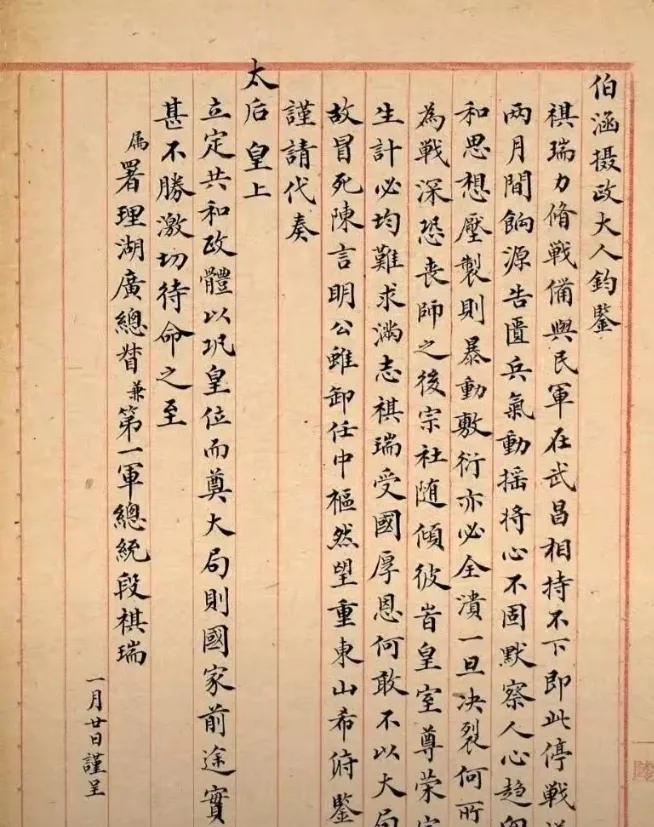 伯涵摄政大人鈞鑒
祺瑞力脩戦備與民軍在武昌相持不下即此停戦
兩月間餉源告匱兵氣動摇将心不固默察人心趋向
和思想壓製則暴動敷衍亦必全潰一旦决裂何所
為戦深恐丧師之後宗社随傾彼旹皇室尊荣宗
生計必均難求满志祺瑞受國厚恩何敢不以大局
故冒死陳言明公雖卸任中樞然望重東山希鑒
謹請代奏
太后 皇上
立定共和政體以巩皇位而奠大局則國家前途實
甚不勝激切待命之至
署理湖廣總督兼第一軍總統段祺瑞
一月廿日謹呈